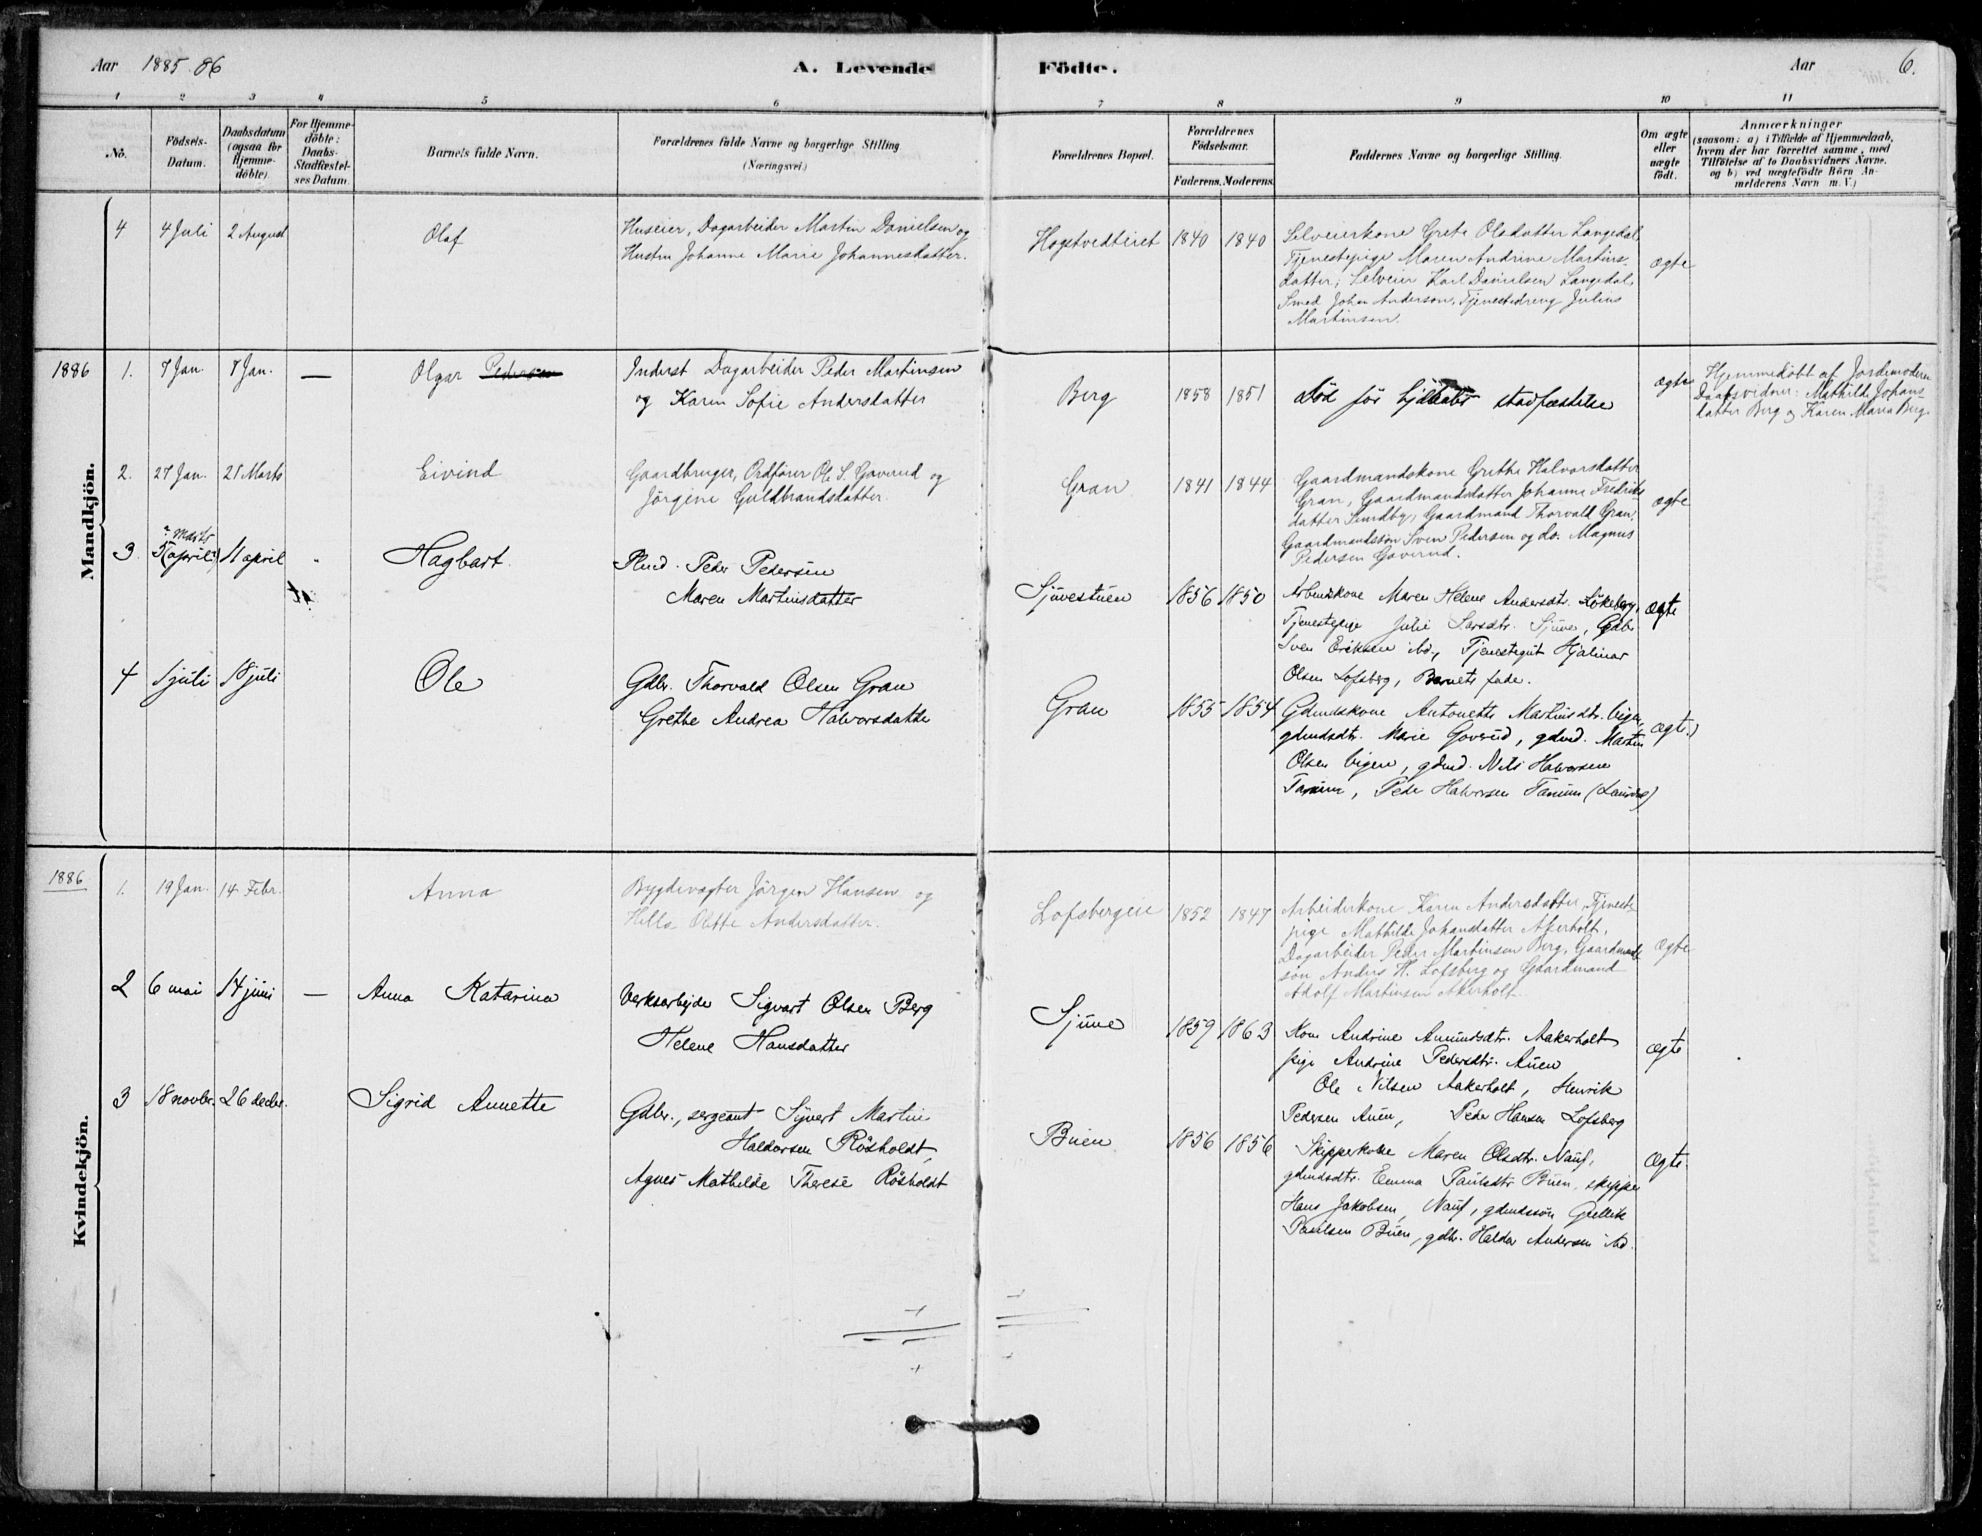 Aar 1885-86
A. Levende Födte.
Aar 6.
1 2 3 4 5 6 7 8 9 10 11
No.
Födsels-
Datum.
Daabsdatum
(ogsaa for
Hjemme-
döbte).
For Hjemme-
döbte:
Daabs-
Stadfæstel-
ses Datum.
Barnets fulde Navn.
Forældrenes fulde Navne og borgerlige Stilling
(Næringsvei)
Forældrenes Bopæl.
Forældrenes
Födselsaar.
Faderens. Moderens.
Faddernes Navne og borgerlige Stilling.
Om ægte
eller
uægte
födt.
Anmærkninger
(saasom: a) i Tilfælde af Hjemmedaab,
hvem der har forrettet samme, med
Tilföielse af to Daabsvidners Navne,
og b) ved uægtefödte Börn An-
melderens Navn m. V.)
4 4 Juli 2 August Olaf
Huseier, Dagarbeider Martin Danielsen og
Hustru Johanne Marie Johannesdatter.
Hogstvedteiet 1840 1840
Selveierkone Grete Olsdatter Langedal,
Tjenestepige Maren Andrine Martins-
datter, Selveier Karl Danielsen Langedal,
Smed Johan Anderson, Tjenestedreng Julius
Martinsen.
ægte
1886
Mandkjön.
1. 7 Jan. 7 Jan. — Olgar Pedersen
Inderst Dagarbeider Peder Martinsen
og Karen Sofie Andersdatter
Berg 1858 1851
Död för stadfæstelse
ægte
Hjemmedöbt af Jordemoderen
Daabsvidner: Mathilde Johans
datter Berg og Karen Maria Berg.
2. 27 Jan. 21 Marts Eivind
Gaardbruger, Ordförer Ole S. Goverud og
Jörgine Guldbrandsdatter.
Gran 1841 1844
Gaardmandskone Grethe Halvorsdatter
Gran, Gaardmandsdatter Johanne Fredriks
datter Sundby, Gaardmand Thorvald Gran,
Gaardmandssön Sven Pedersen og do. Magnus
Pedersen Goverud.
ægte
3. Marts
april 11 april " Hagbart.
Peder Pedersen
Maren Martinsdatter
Sjuvestuen 1856 1850
Arbmdskone Maren Helene Andersdtr. Lökeberg,
Tjenestepige Julie Larsdtr. Sjuve, Gdbr.
Sven Eriksen ibd., Tjenestegut Hjalmar
Olsen Lofsberg, Barnets fader.
ægte
4 1 juli 18 juli Ole
Gdbr. Thorvald Olsen Gran
Grethe Andrea Halvorsdatter
Gran 1855 1854
Gdmdskone Antonette Martinsdtr. Vigen,
gdmdsdtr. Marie Goverud, gdmd. Martin
Olsen Vigen, gdmd. Nils Halvorsen
Tanum, Peder Halvorsen Tanum
ægte
1886
Kvindekjön.
1. 19 Jan. 14 Febr. Anna
Bygdevægter Jörgen Hansen og
Olette Andersdatter.
Lofsbergeie 1852 1847
Arbeiderkone Karen Andersdatter, Tjeneste-
pige Mathilde Johansdatter Akerholt,
Dagarbeider Peder Martinsen Berg, Gaardmands
sön Anders H. Lofsberg og Gaardmand
Adolf Martinsen Akerholt.
ægte
2 6 mai 14 juni — Anna Katarina
Verksarbejder Sigvart Olsen Berg
Helene Hansdatter
Sjuve 1859 1863
Kone Andrine Amundsdtr. Aakerholt
pige Andrine Pedersdtr. Auen
Ole Nilsen Aakerholt, Henrik
Pedersen Auen, Peder Hansen Lofsberg
ægte
3 18 novbr. 26 decbr. Sigrid Annette
Gdbr., sergeant Sigvert Martin
Haldorsen Rösholdt,
Agnes Mathilde Therese Rösholdt
Buen 1856 1856
Skipperkone Maren Olsdtr. Nauf,
gdmdsdtr. Emma Paulsdtr Buen, skipper
Hans Jakobsen, Nauf, gdmdssön Gullik
Paulsen Buen, gdbr. Haldor Andersen ibd.
ægte.